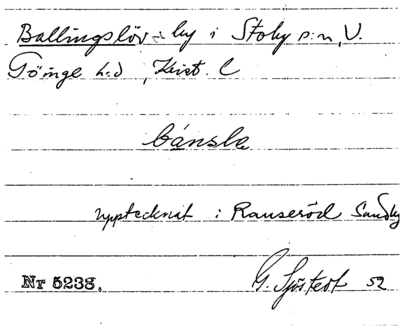 Ballingslöv by i Stoby s:n, V.
Göinge h:d, Krist. l
bánsla
upptecknat i Ranseröd Sandby
Nr 5238. G. Sjöstedt 52